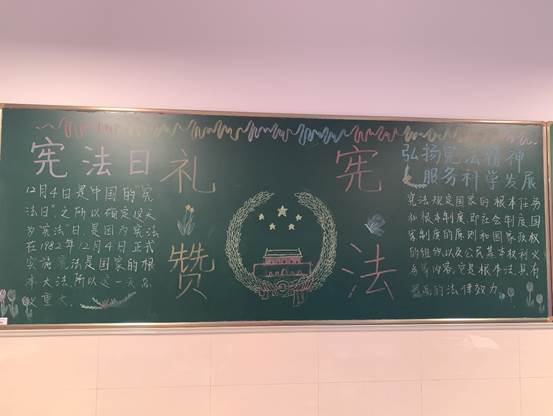 宪法日
12月4日是中国的"宪
法日"之所以确定这天
为"宪法"日,是因为宪法
在1982年12月4日正式
实施宪法是国家的根
本大法,所以这一天意
义重大。
礼赞
宪法
弘扬宪法精神
服务科学发展
宪法规定国家的根本任务
和根本制度即社会制度国
家制度的原则和国家政权
的组织以及公民基本权利义
务等内容,它是根本法具有
最高的法律效力